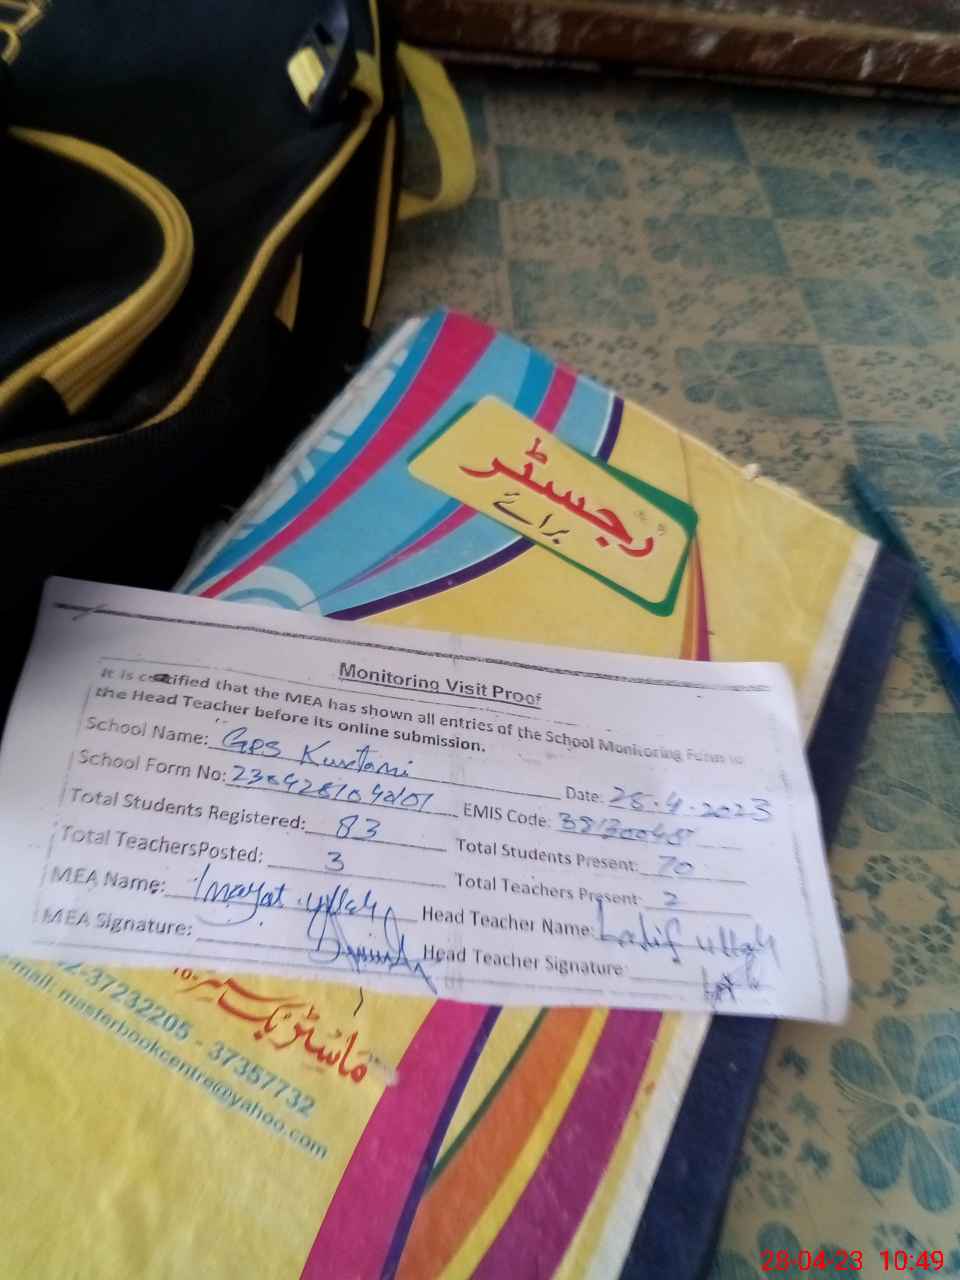 رجسٹر
برائے
Monitoring Visit Proof
It is certified that the MEA has shown all entries of the School Monitoring Form to
the Head Teacher before its online submission.
School Name: GPS Kurtani
Date: 28.4.2023
School Form No:
EMIS Code:
Total Students Registered: 83
Total Students Present: 70
Total TeachersPosted: 3
Total Teachers Present: 2
MEA Name: Inayat ullah
Head Teacher Name: Latif ullah
MEA Signature:
Head Teacher Signature:
ماسٹر بک سینٹر
37232205 - 37357732
email: masterbookcentre@yahoo.com
28-04-23 10:49